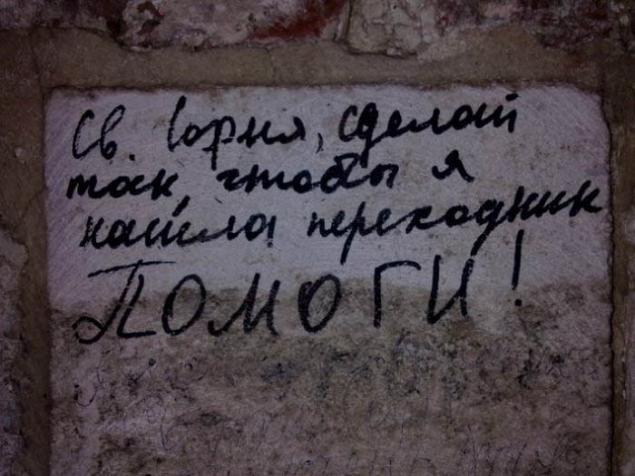 Св. София, сделай
так, чтобы я
нашла переходник
ПОМОГИ!